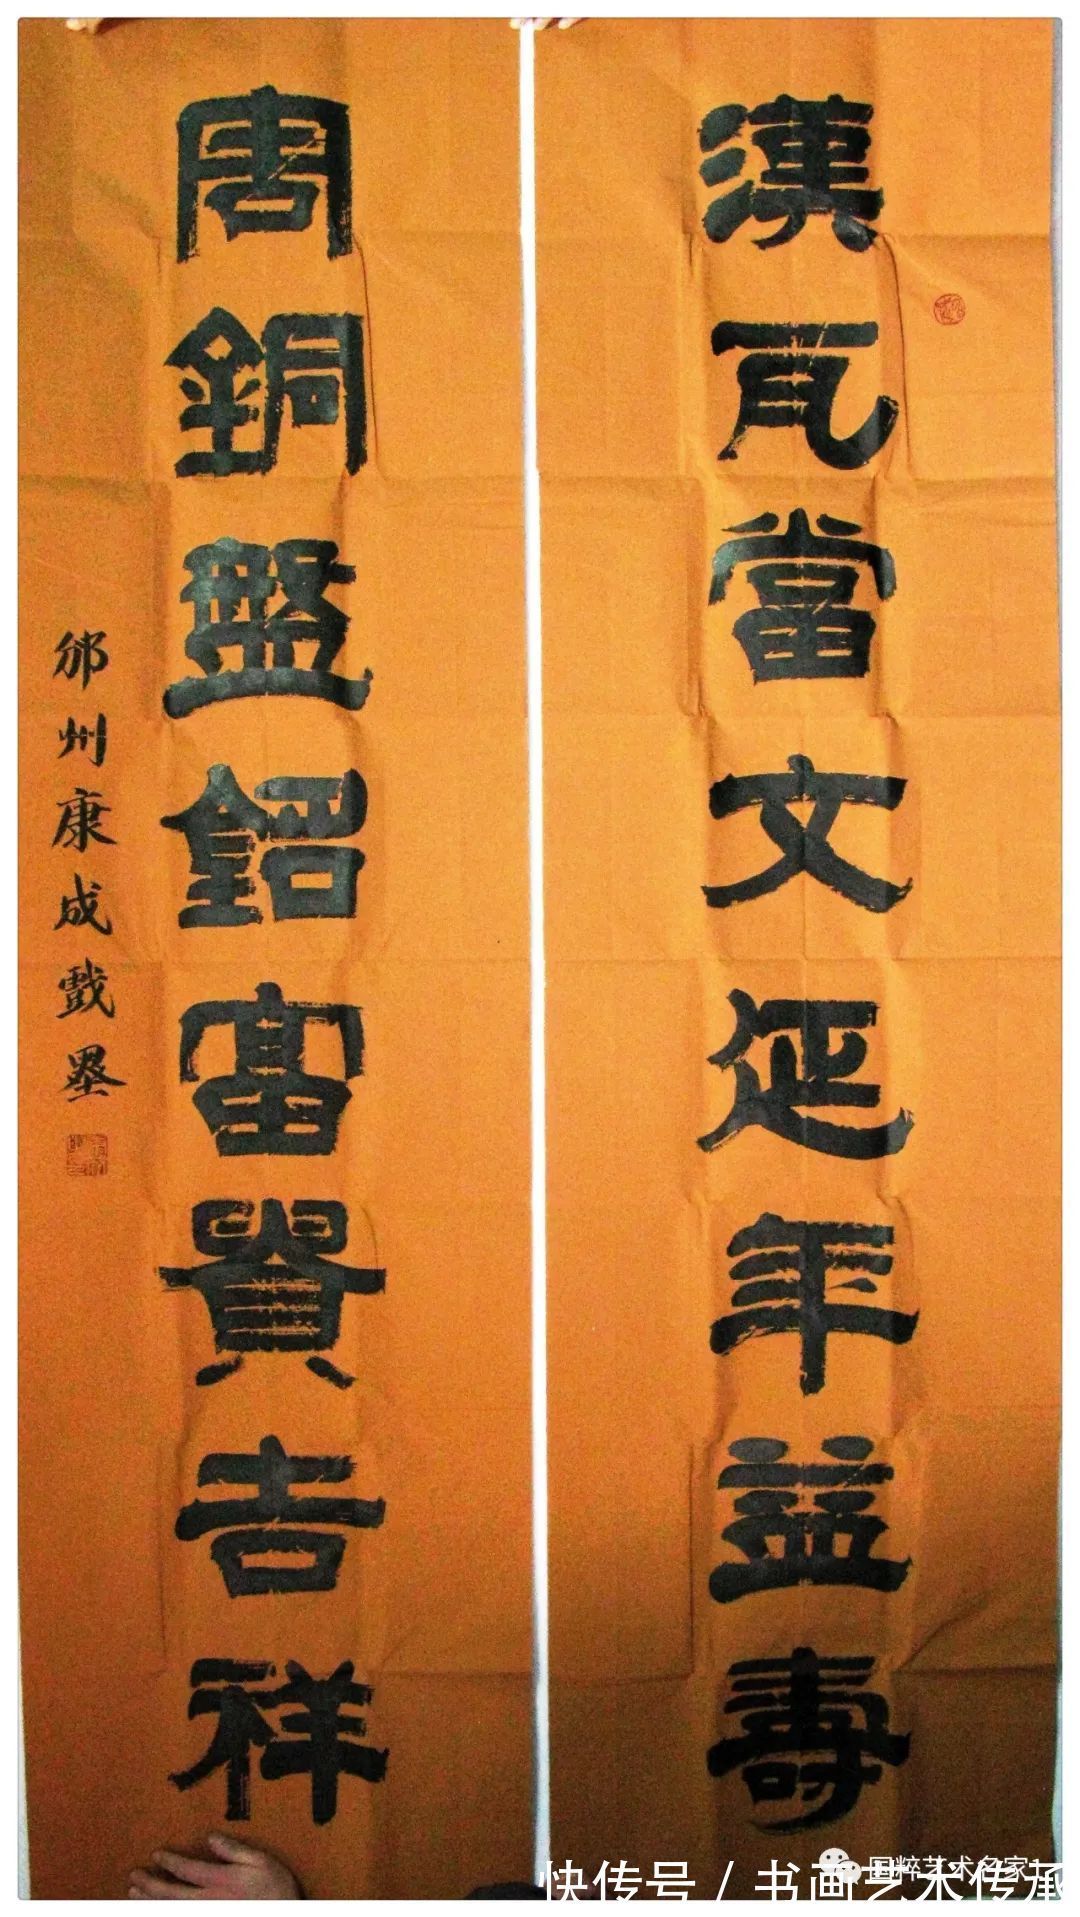 漢瓦當文延年益壽
周銅盤銘富貴吉祥
邠州康成戲墨
国粹艺术名家
快传号/书画艺术传承